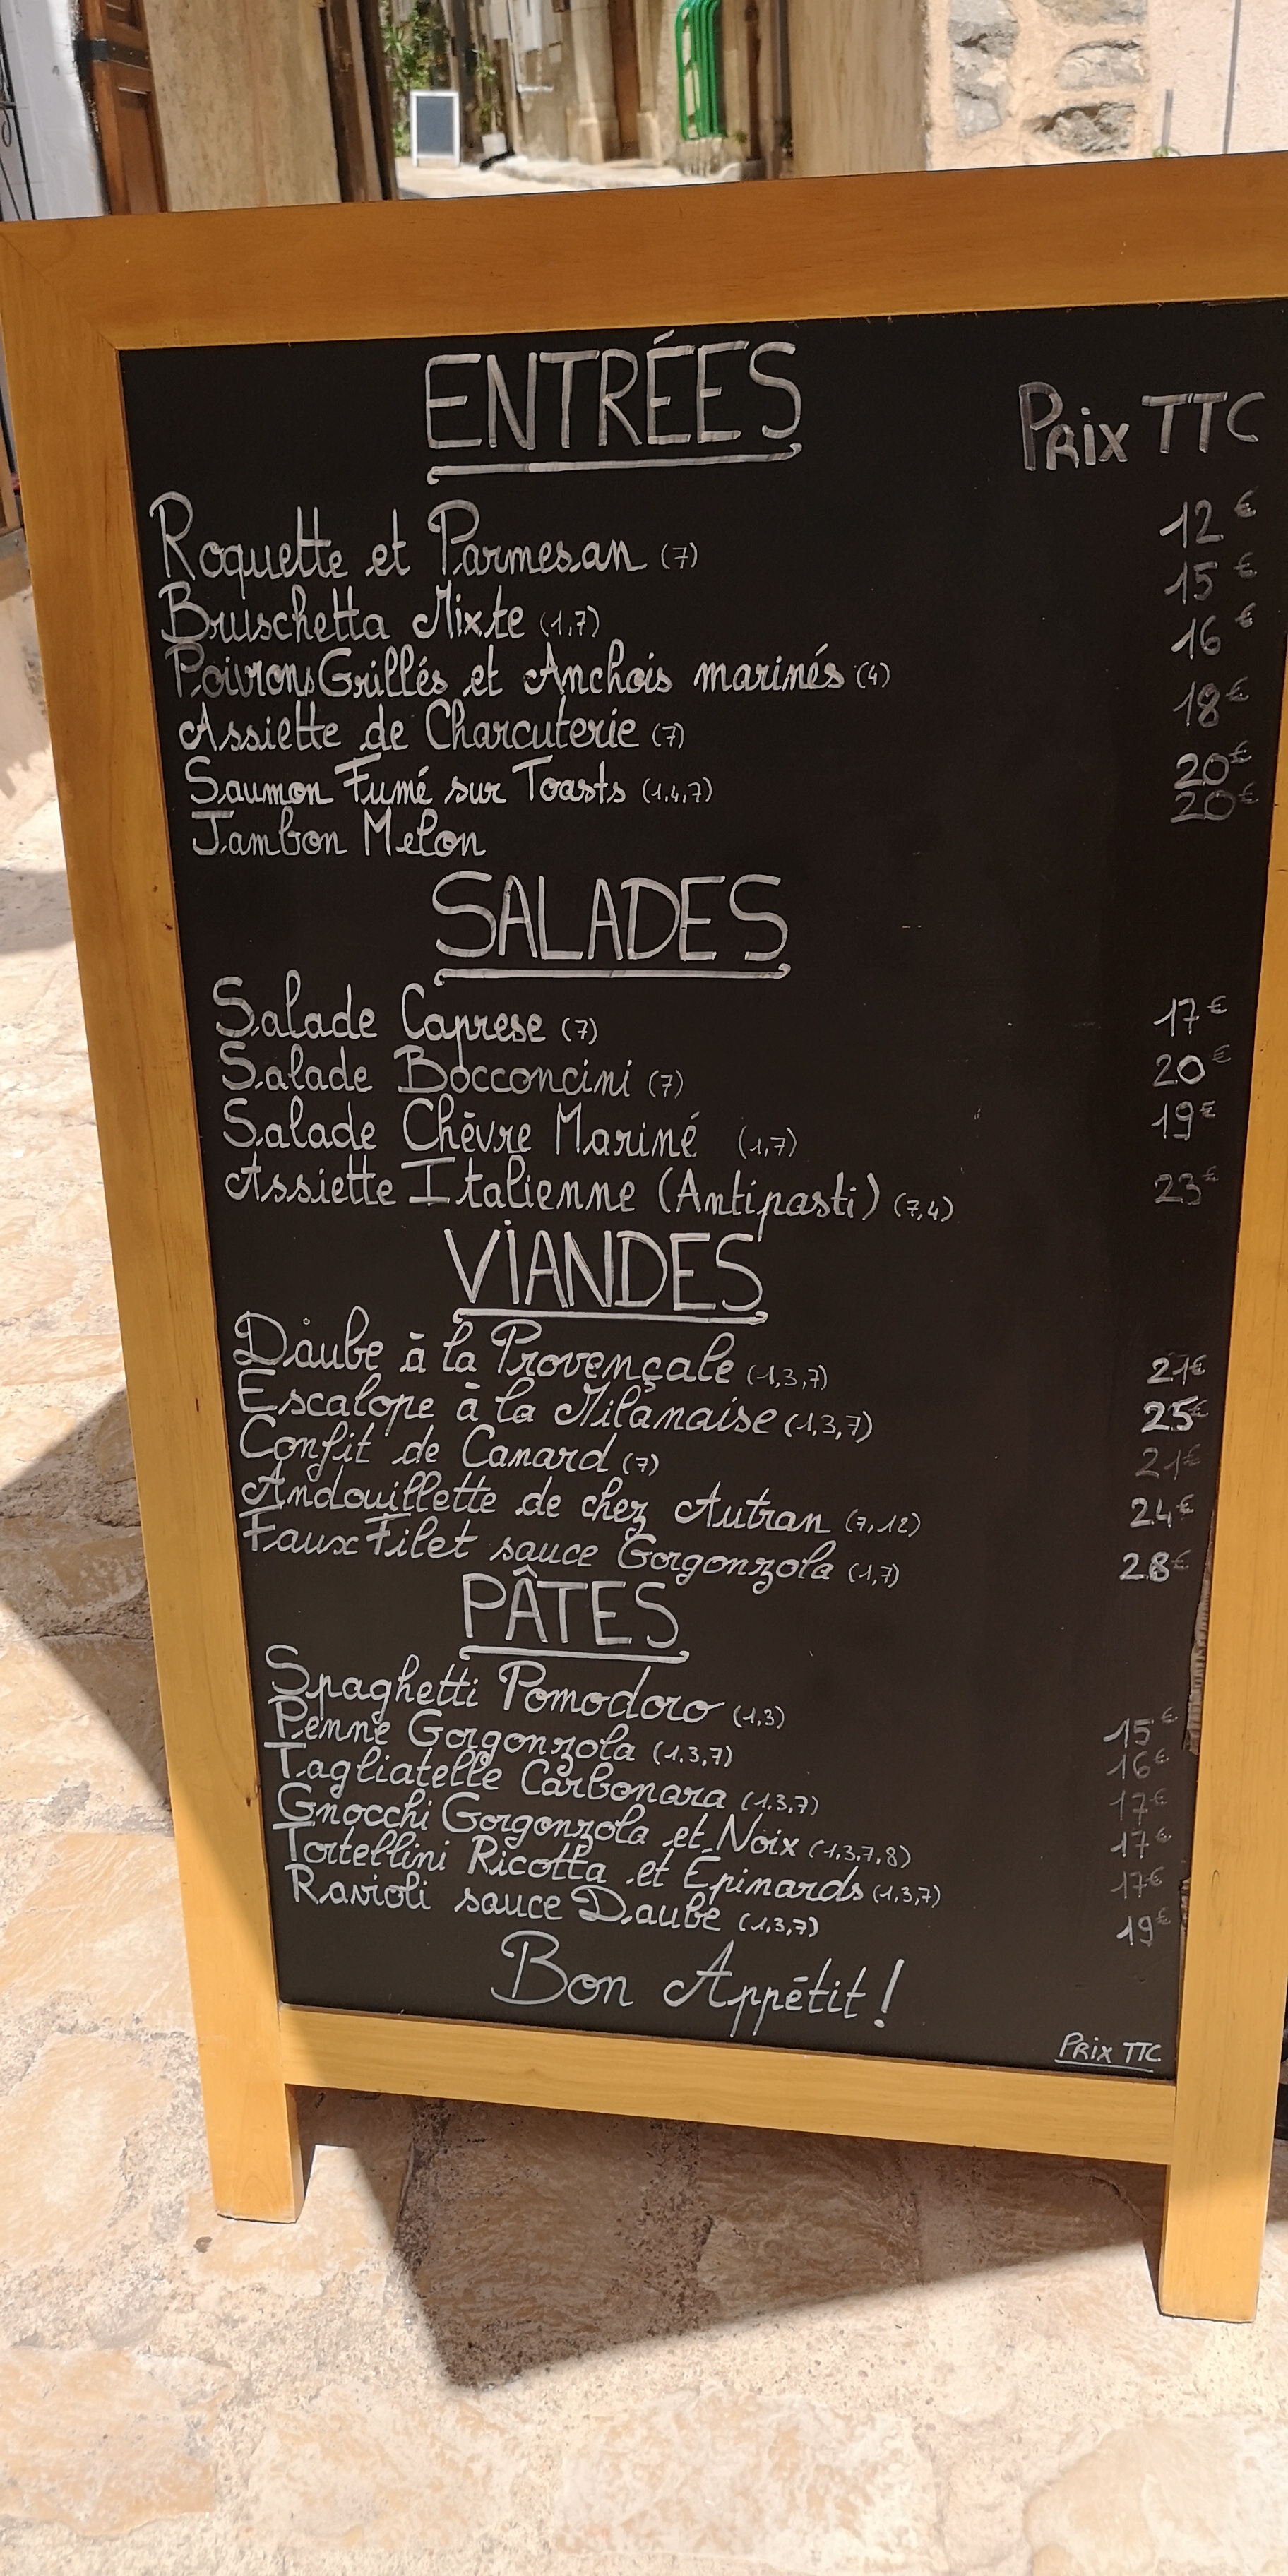 ENTRÉES
Prix TTC
Roquette et Parmesan (7) 12€
Bruschetta Mixte (1,7) 15€
Poivrons Grillés et Anchois marinés (4) 16€
Assiette de Charcuterie (7) 18€
Saumon Fumé sur Toasts (1,4,7) 20€
Jambon Melon 20€
SALADES
Salade Caprese (7) 17€
Salade Bocconcini (7) 20€
Salade Chèvre Mariné (1,7) 19€
Assiette Italienne (Antipasti) (7,4) 23€
VIANDES
Daube à la Provençale (1,3,7) 21€
Escalope à la Milanaise (1,3,7) 25€
Confit de Canard (7) 21€
Andouillette de chez Autran (7,12) 24€
Faux Filet sauce Gorgonzola (1,7) 28€
PÂTES
Spaghetti Pomodoro (1,3) 15€
Penne Gorgonzola (1,3,7) 16€
Tagliatelle Carbonara (1,3,7) 17€
Gnocchi Gorgonzola et Noix (1,3,7,8) 17€
Tortellini Ricotta et Épinards (1,3,7) 17€
Ravioli sauce Daube (1,3,7) 19€
Bon Appétit!
Prix TTC